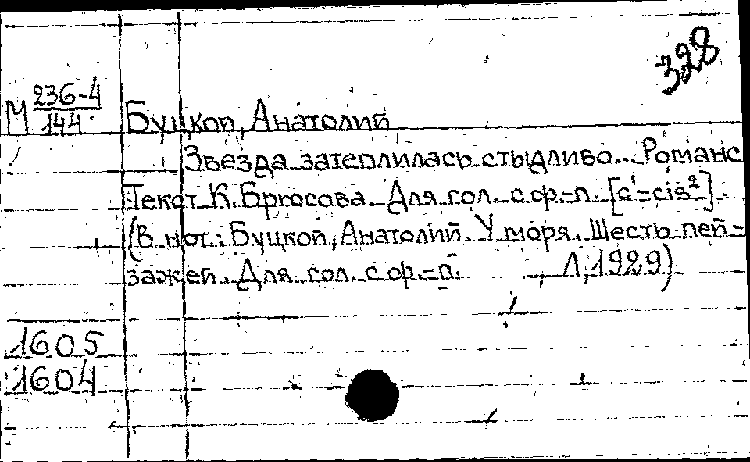 328
М 236-4/144 Буцкой, Анатолий
Звезда затеплилась стыдливо... Романс
Текст К. Брюсова. Для гол. с ор.=п. [c¹=cis²]
(В нот.: Буцкой, Анатолий. У моря. Шесть пей=
зажей. Для гол. с ор.=п. , Л, 1929)
1605
1604